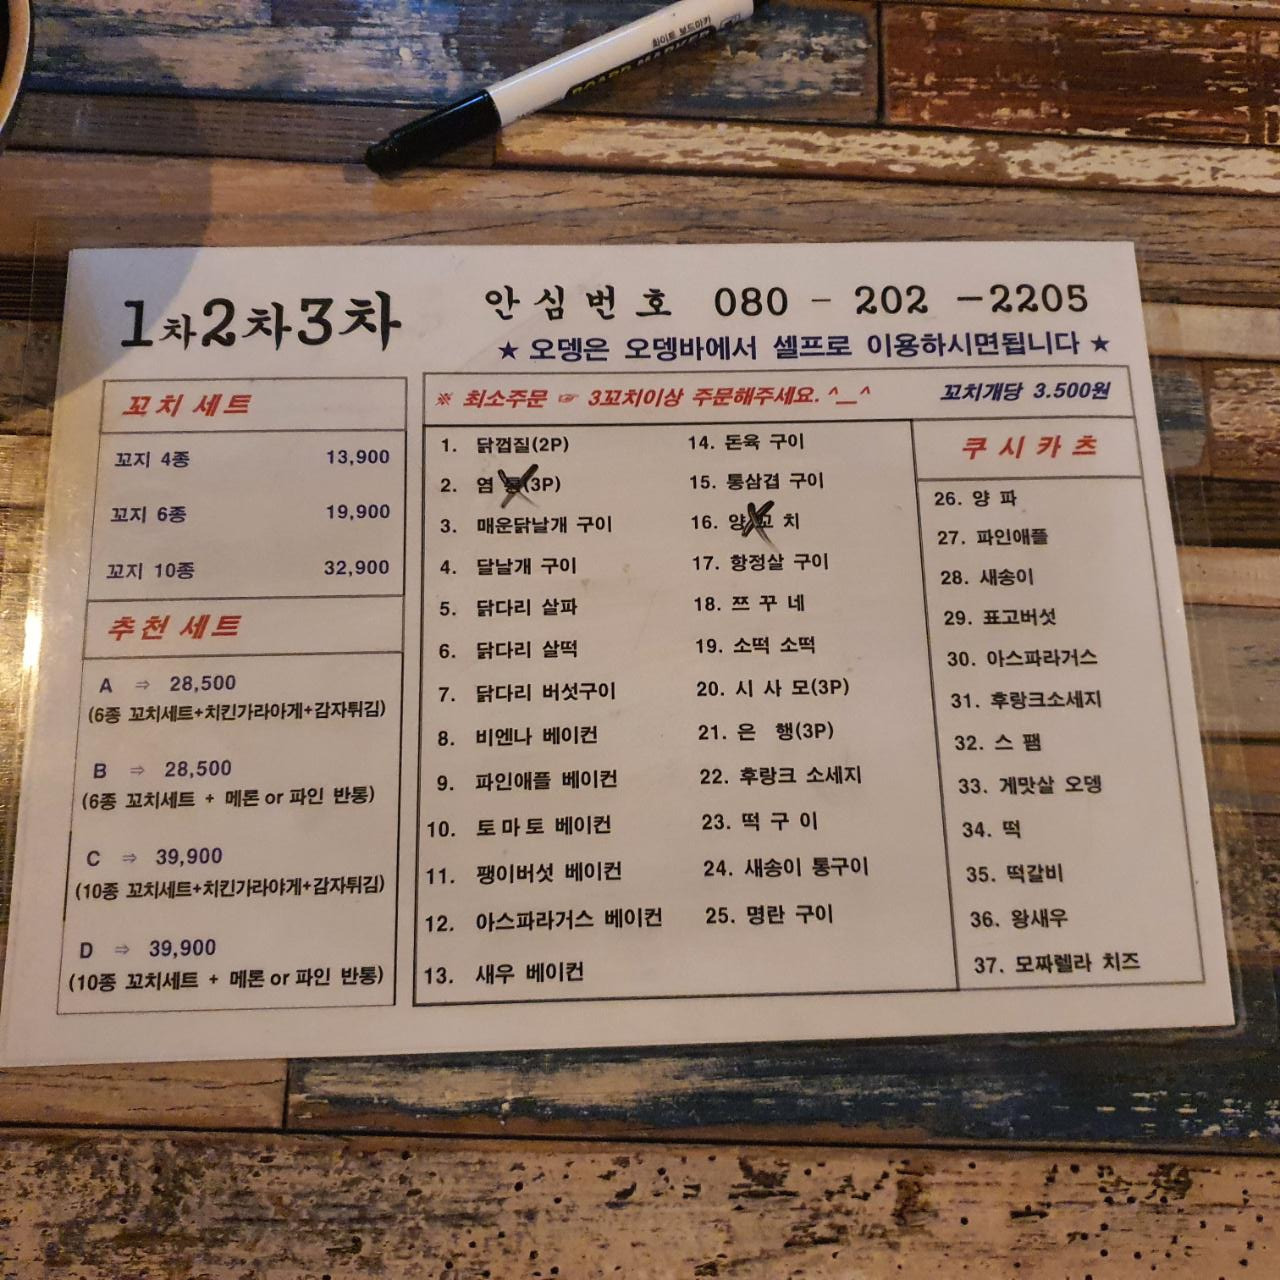 화이트 보드마카
BOARD MARKER
1차2차3차
안심번호 080 - 202 -2205
★ 오뎅은 오뎅바에서 셀프로 이용하시면됩니다 ★
꼬치 세트
꼬지 4종 13,900
꼬지 6종 19,900
꼬지 10종 32,900
추천 세트
A ⇒ 28,500
(6종 꼬치세트+치킨가라아게+감자튀김)
B ⇒ 28,500
(6종 꼬치세트 + 메론 or 파인 반통)
C ⇒ 39,900
(10종 꼬치세트+치킨가라야게+감자튀김)
D ⇒ 39,900
(10종 꼬치세트 + 메론 or 파인 반통)
※ 최소주문 ☞ 3꼬치이상 주문해주세요. ^__^ 꼬치개당 3.500원
1. 닭껍질(2P)
2. 염통(3P)
3. 매운닭날개 구이
4. 달날개 구이
5. 닭다리 살파
6. 닭다리 살떡
7. 닭다리 버섯구이
8. 비엔나 베이컨
9. 파인애플 베이컨
10. 토마토 베이컨
11. 팽이버섯 베이컨
12. 아스파라거스 베이컨
13. 새우 베이컨
14. 돈육 구이
15. 통삼겹 구이
16. 양꼬치
17. 항정살 구이
18. 쯔꾸네
19. 소떡 소떡
20. 시사모(3P)
21. 은 행(3P)
22. 후랑크 소세지
23. 떡구이
24. 새송이 통구이
25. 명란 구이
쿠시카츠
26. 양파
27. 파인애플
28. 새송이
29. 표고버섯
30. 아스파라거스
31. 후랑크소세지
32. 스팸
33. 게맛살 오뎅
34. 떡
35. 떡갈비
36. 왕새우
37. 모짜렐라 치즈